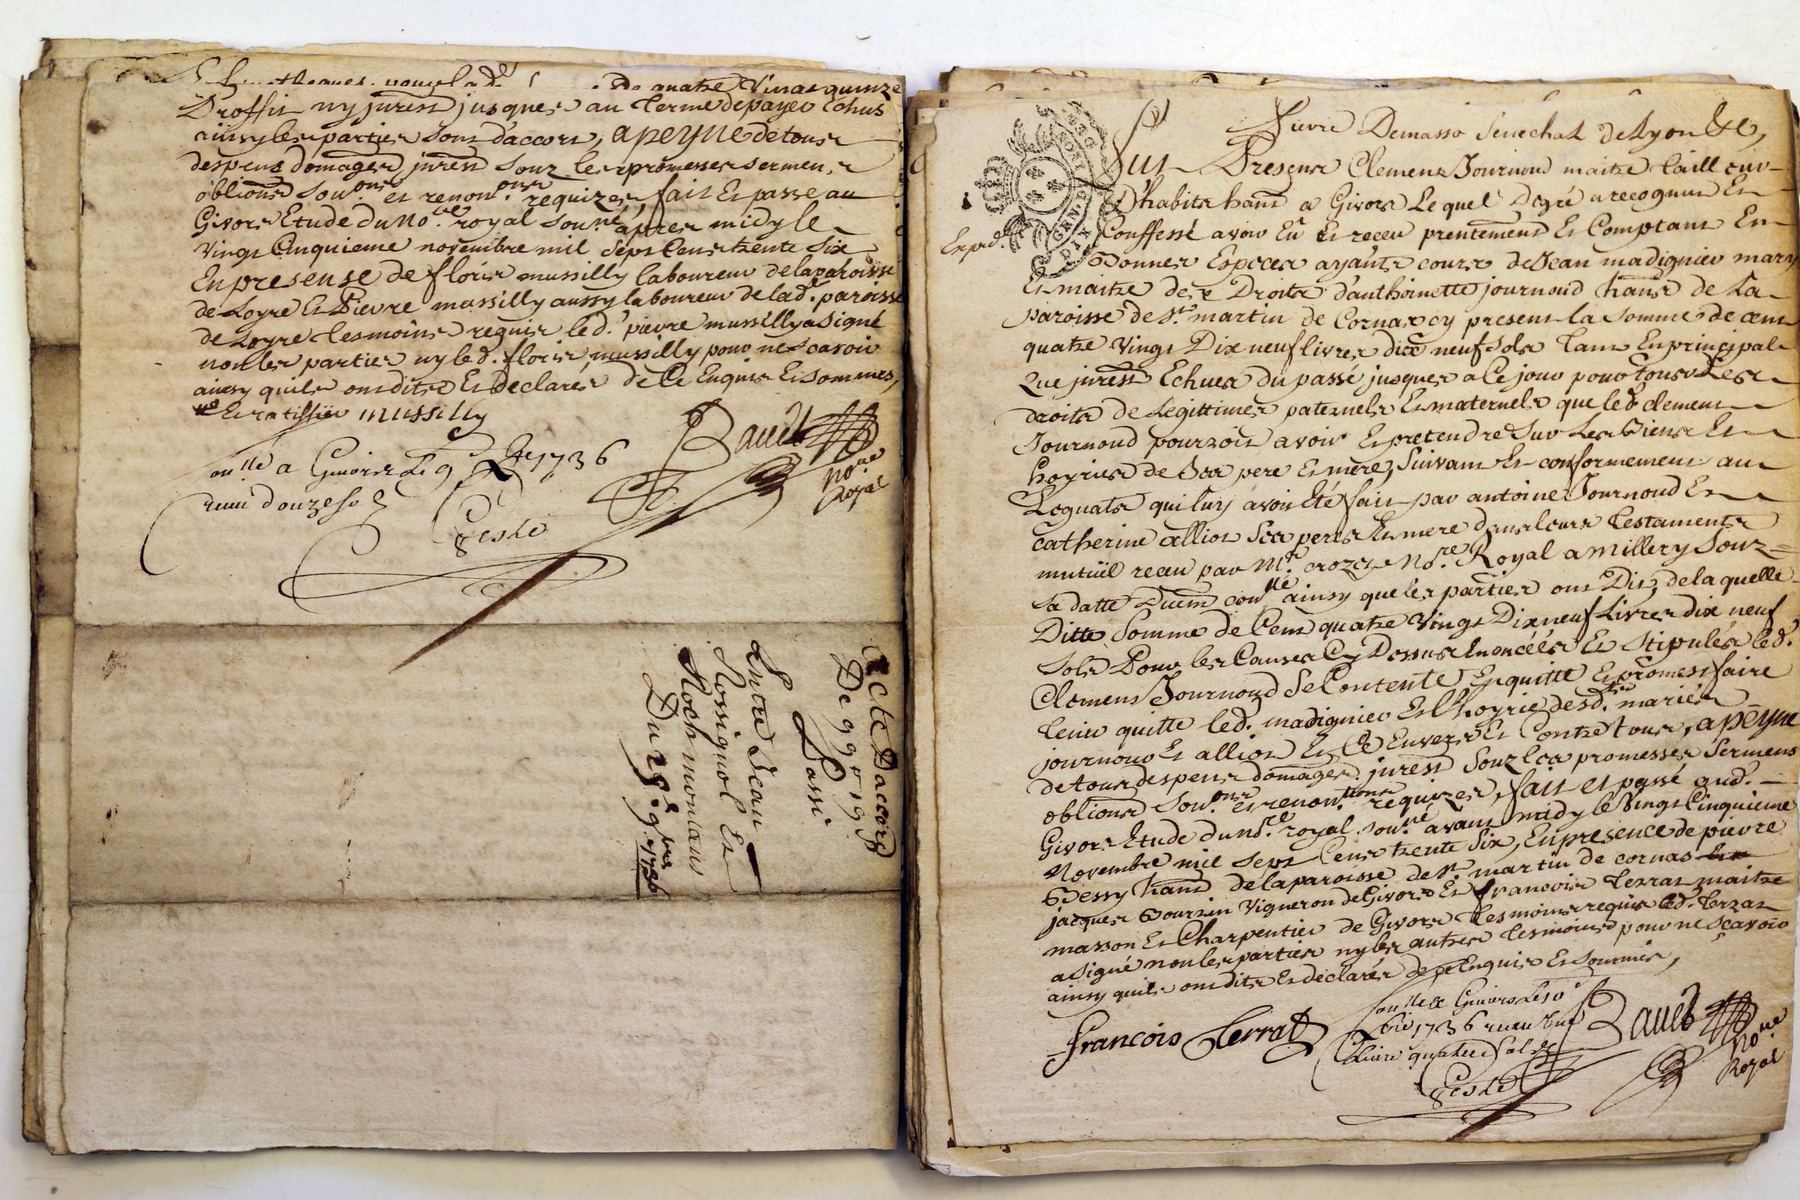 de quatre Vingt quinze
Droffit ny jurest jusques au terme de payer Echus
ainsy les parties sont d'accort, a peyne de tous
despens domages jurest souz les promesses sermens
obliōns soum.ons et renon.ons requizes, fait et passé au
Givors Etude du No.re royal sous.né apres midy le
Vingt Cinquieme novembre mil sept Cens trente Six
En presense de floris mussilly laboureur de la paroisse
de Loyre Et Pievre mussilly aussy laboureur de lad.e paroisse
de Loyre tesmoins requis led.t pievre mussilly a signé
non les parties ny led. floris mussilly pour ne scavoir
ainsy quils ont dits Et Declares de Ce Enquis Et sommes,
mussilly
Bauet
No.re
Royal
Con.lle a Givors le 9 1736
receu douze sols
Geste
Acte Daccord
De 99# 19s
Passé
Entre Jean
Rossignol Et
Du 25.e 9.bre 1736
Expd.
GEN DE LYON
DIX DEN
Pievre Demasso Senechal de Lyon &c,
Fut Present Clemens Journoud maitre Tailleur
D'habits hant a Givors Lequel Degré a recognu Et
Confessé avoir Eû Et receu presentement Et Comptant En
Bonnes Especes ayants cours de Jean madignier mary
Et maitre des Droits d'anthoinette journoud hants de La
paroisse de St martin de Cornas cy present la Somme de cent
quatre Vingt Dix neuf livres dix neuf sols Tant En principal
Que jurest Echues du passé jusques a Ce jour pour tous Les
droits de Legittimes paternels Et maternels que led. clemens
Journoud pourzoit avoir Et pretendre Sur Les Biens Et
hoyries de Ses pere Et mere, Suivant Et conformement au
Legnats qui luy avoit Eté fait par antoine Journoud Et
Catherine alliot Ses peres Et mere dans leurs Testaments
mutuël receu par M.re crozet No.re Royal a Millery Souz
sa datte Duem.t con.llé ainsy que les parties ont Dit, de laquelle
Ditte Somme de Cent quatre Vingt Dix neuf Livres dix neuf
sols Pour les Causes Cy Dessus Enoncéés Et Stipulés led.
Clemens Journoud Se Contente Et quitte Et promest faire
tenir quitte led. madignier Et l'hoyrie desd. mariés
journoud Et alliot Et Ce Envers Et Contre tous, a peyne
de tous despens domages jurest Souz Les promesses Sermens
obliōns soum.ons et renon.tions requizes, fait et passé aud.
Givors Etude du No.re royal sous.né avant midy le Vingt Cinquieme
Novembre mil Sept Cens trente Six, En presence de pievre
Bessy hant de la paroisse de St martin de cornas
jacques Bourzin Vigneron de Givors Et francois Terrat maitre
masson Et Charpentier de Givors Tesmoins requis led. Terrat
a signé non les parties ny les autres tesmoins pour ne Scavoir
ainsy quils ont dits Et declarés de ce Enquis Et sommés,
francois Terrat
Con.lle a Givors le 9
1736 receu
livre quatre sols
Geste
Bauet
No.re
Royal